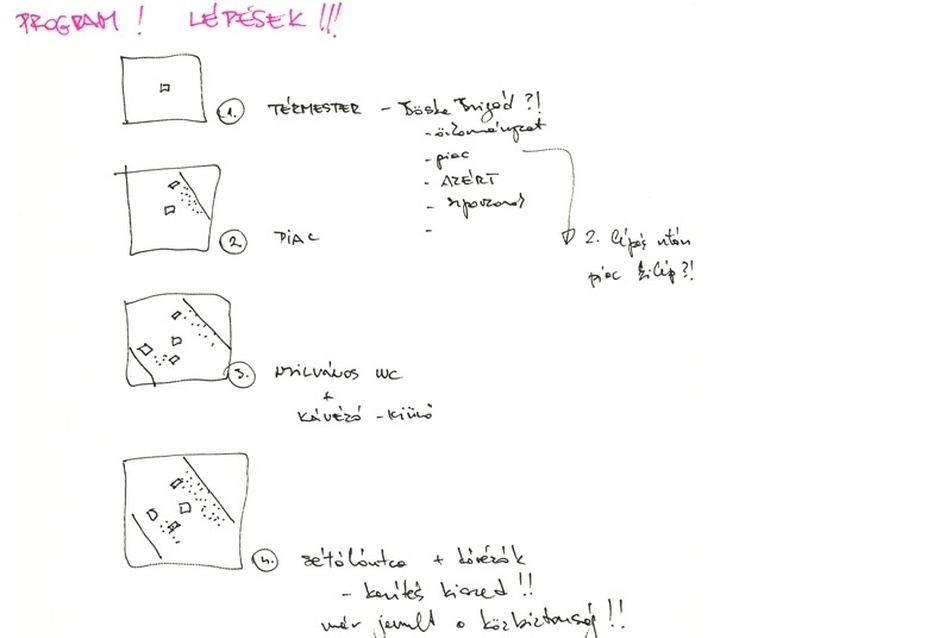 PROGRAM! LÉPÉSEK!!!
1. TÉRMESTER - Böske Brigád?!
- önkormányzat
- piac
- AZÉRT
- szponzorok
-
2. PIAC
2. lépés után
piac kilép?!
3. NYILVÁNOS WC
+
KÁVÉZÓ - KIÜLŐ
4. sétálóutca + kávézók
- kerítés kiszed!!
már javult a közbiztonság!!